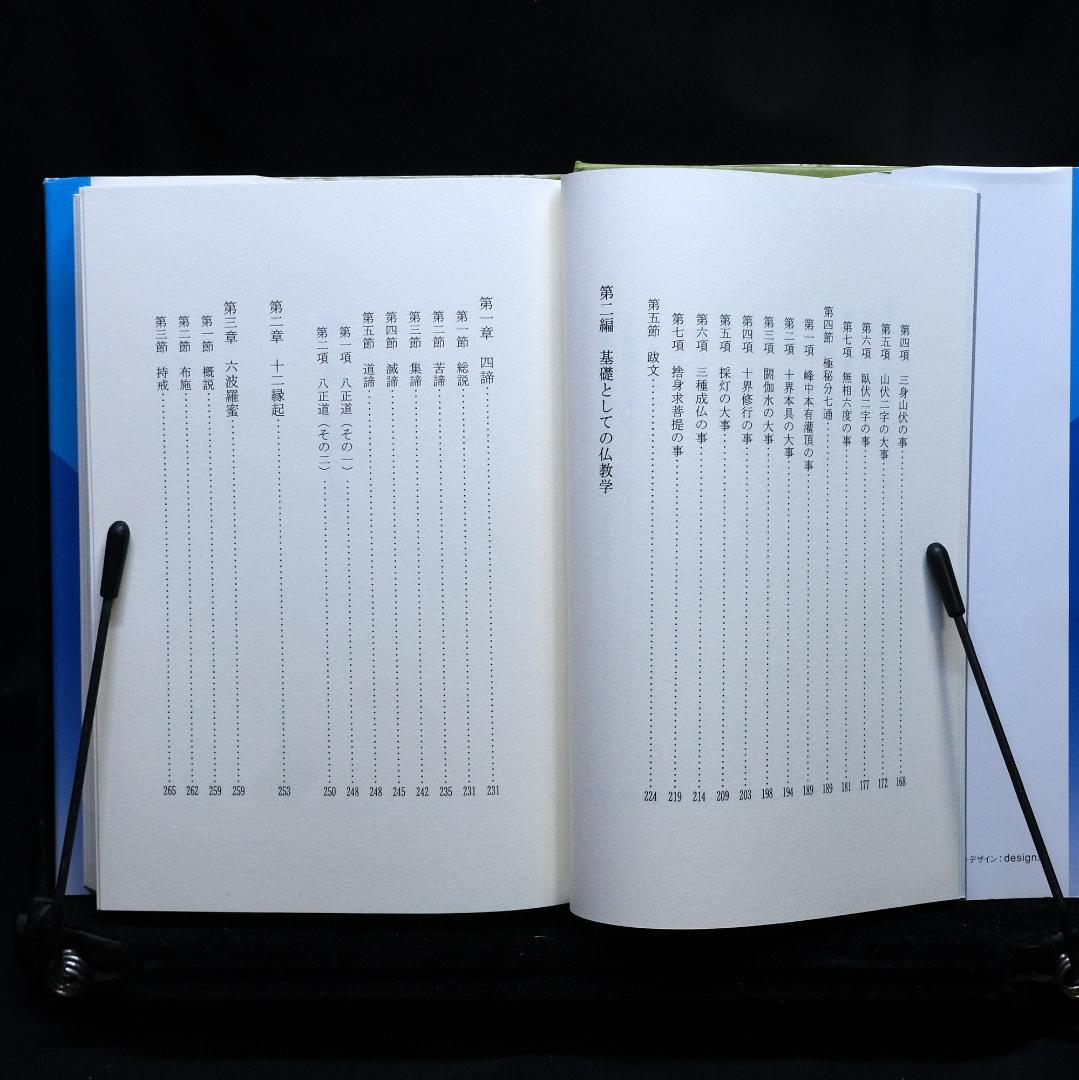 第四項　三身山伏の事……168
第五項　山伏二字の大事……172
第六項　臥伏二字の事……177
第七項　無相六度の事……181
第四節　極秘分七通……189
第一項　峰中本有灌頂の事……189
第二項　十界本具の大事……194
第三項　閼伽水の大事……198
第四項　十界修行の事……203
第五項　採灯の大事……209
第六項　三種成仏の事……214
第七項　捨身求菩提の事……219
第五節　跋文……224
第二編　基礎としての仏教学
第一章　四諦……231
第一節　総説……231
第二節　苦諦……235
第三節　集諦……242
第四節　滅諦……245
第五節　道諦……248
第一項　八正道（その一）……248
第二項　八正道（その二）……250
第二章　十二縁起……253
第三章　六波羅蜜……259
第一節　概説……259
第二節　布施……262
第三節　持戒……265
デザイン：design